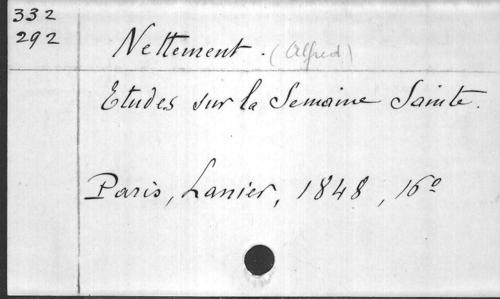 332
292
Nettement. (Alfred)
Etudes sur la Semaine Sainte.
Paris, Lanier, 1848, 16º